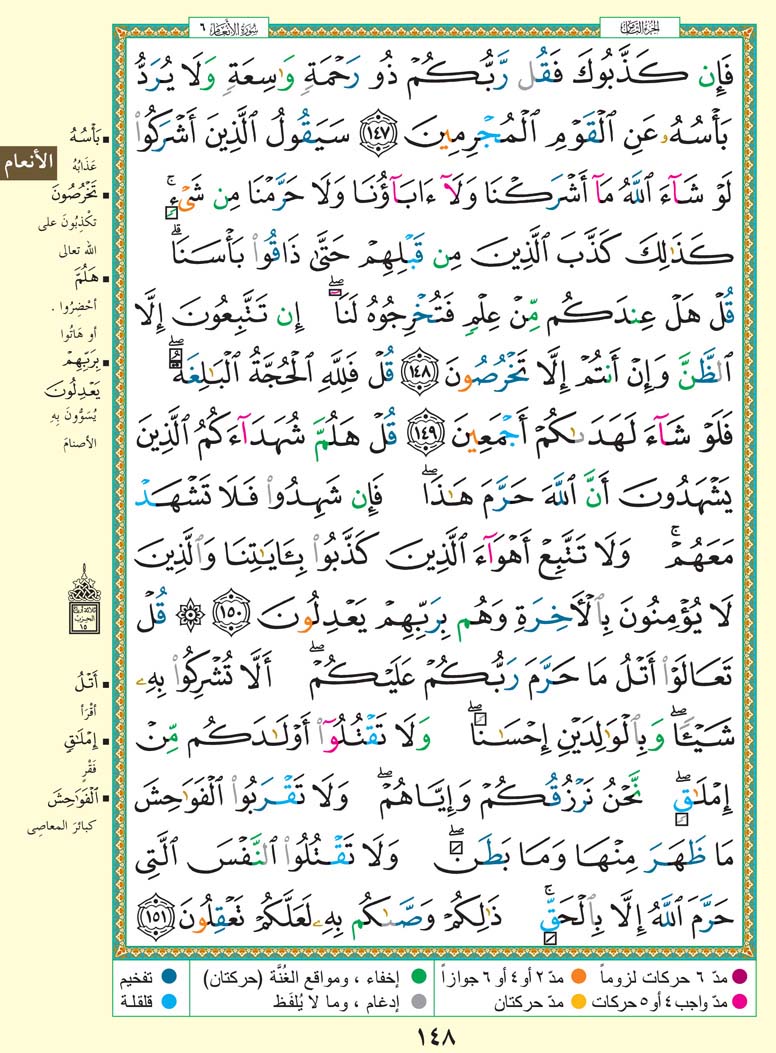 الجزء الثامن
سورة الأنعام ٦
فَإِن كَذَّبُوكَ فَقُل رَّبُّكُمْ ذُو رَحْمَةٍ وَٰسِعَةٍ وَلَا يُرَدُّ
بَأْسُهُۥ عَنِ ٱلْقَوْمِ ٱلْمُجْرِمِينَ ١٤٧ سَيَقُولُ ٱلَّذِينَ أَشْرَكُوا۟
لَوْ شَآءَ ٱللَّهُ مَآ أَشْرَكْنَا وَلَآ ءَابَآؤُنَا وَلَا حَرَّمْنَا مِن شَىْءٍۚ
كَذَٰلِكَ كَذَّبَ ٱلَّذِينَ مِن قَبْلِهِمْ حَتَّىٰ ذَاقُوا۟ بَأْسَنَاۗ
قُلْ هَلْ عِندَكُم مِّنْ عِلْمٍ فَتُخْرِجُوهُ لَنَآۖ إِن تَتَّبِعُونَ إِلَّا
ٱلظَّنَّ وَإِنْ أَنتُمْ إِلَّا تَخْرُصُونَ ١٤٨ قُلْ فَلِلَّهِ ٱلْحُجَّةُ ٱلْبَٰلِغَةُۖ
فَلَوْ شَآءَ لَهَدَىٰكُمْ أَجْمَعِينَ ١٤٩ قُلْ هَلُمَّ شُهَدَآءَكُمُ ٱلَّذِينَ
يَشْهَدُونَ أَنَّ ٱللَّهَ حَرَّمَ هَٰذَاۖ فَإِن شَهِدُوا۟ فَلَا تَشْهَدْ
مَعَهُمْۚ وَلَا تَتَّبِعْ أَهْوَآءَ ٱلَّذِينَ كَذَّبُوا۟ بِـَٔايَٰتِنَا وَٱلَّذِينَ
لَا يُؤْمِنُونَ بِٱلْـَٔاخِرَةِ وَهُم بِرَبِّهِمْ يَعْدِلُونَ ١٥٠ ۞ قُلْ
تَعَالَوْا۟ أَتْلُ مَا حَرَّمَ رَبُّكُمْ عَلَيْكُمْۖ أَلَّا تُشْرِكُوا۟ بِهِۦ
شَيْـًٔاۖ وَبِٱلْوَٰلِدَيْنِ إِحْسَٰنًاۖ وَلَا تَقْتُلُوٓا۟ أَوْلَٰدَكُم مِّنْ
إِمْلَٰقٍۖ نَّحْنُ نَرْزُقُكُمْ وَإِيَّاهُمْۖ وَلَا تَقْرَبُوا۟ ٱلْفَوَٰحِشَ
مَا ظَهَرَ مِنْهَا وَمَا بَطَنَۖ وَلَا تَقْتُلُوا۟ ٱلنَّفْسَ ٱلَّتِى
حَرَّمَ ٱللَّهُ إِلَّا بِٱلْحَقِّۚ ذَٰلِكُمْ وَصَّىٰكُم بِهِۦ لَعَلَّكُمْ تَعْقِلُونَ ١٥١
الأنعام
بَأْسُهُ
عَذَابُهُ
تَخْرُصُونَ
تَكْذِبُونَ على
الله تعالى
هَلُمَّ
أحْضِرُوا .
أو هَاتُوا
بِرَبِّهِمْ
يَعْدِلُونَ
يُسَوُّونَ بِهِ
الأصنامَ
ثلاثة أرباع
الحزب
١٥
أَتْلُ
أقْرَأ
إِمْلَٰقٍ
فَقْرٍ
ٱلْفَوَٰحِشَ
كبائرَ المعاصِي
مدّ ٦ حركات لزوماً
مدّ ٢ أو ٤ أو ٦ جوازاً
إخفاء ، ومواقع الغُنَّة (حركتان)
تفخيم
مدّ واجب ٤ أو ٥ حركات
مدّ حركتان
إدغام ، وما لا يُلفَظ
قلقلة
١٤٨